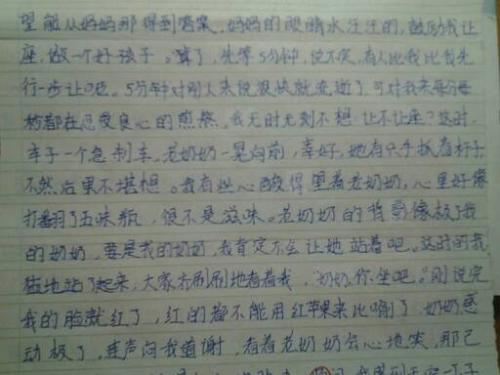 望能从妈妈那得到答案，妈妈的眼睛水汪汪的，鼓励我让
座，做一个好孩子。算了，先等5分钟，说不定，有人比我比首先
行一步让了呢。5分钟对别人来说很快就流逝了，可对我来每分每
秒都在忍受良心的煎熬。我无时无刻不想让不让座？这时，
车子一个急刹车，老奶奶一晃向前，幸好，她有只手扶着杆子，
不然后果不堪想。我有些心酸得望着老奶奶，心里好像
打翻了五味瓶，很不是滋味。老奶奶的背影像极了我
的奶奶，要是我的奶奶，我肯定不会让她站着吧。这时的我
猛地站了起来，大家齐刷刷地看着我，“奶奶，你坐吧。”刚说完
我的脸就红了，红的都不能用红苹果来比喻了，奶奶感
动极了，连声向我道谢，看着老奶奶会心地笑，那已